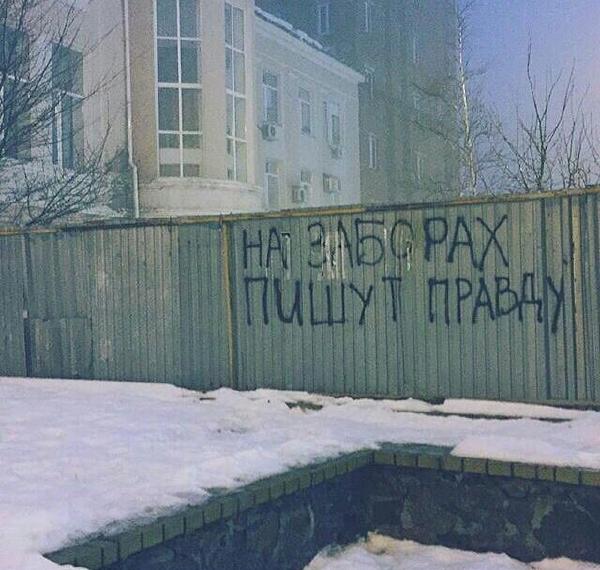 НА ЗАБОРАХ
ПИШУТ ПРАВДУ